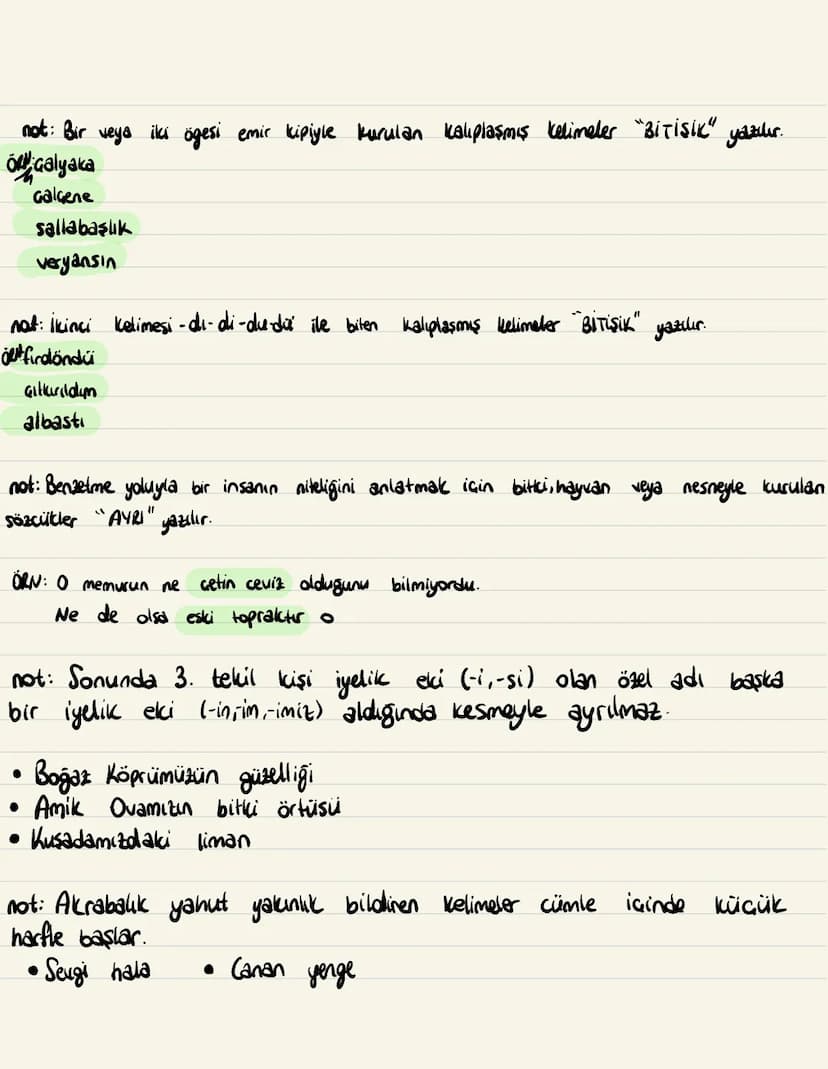 not: Bir veya iki ögesi emir kipiyle kurulan kalıplaşmış kelimeler "BİTİŞİK" yazılır.
ÖRN: Çalyaka
Çalçene
sallabaşlık
veryansın
not: İkinci kelimesi -dı- di -du-dü ile biten kalıplaşmış kelimeler "BİTİŞİK" yazılır.
fırdöndü
Çıtkırıldım
albastı
not: Benzetme yoluyla bir insanın niteliğini anlatmak için bitki, hayvan veya nesneyle kurulan
sözcükler "AYRI" yazılır.
ÖRN: O memurun ne çetin ceviz olduğunu bilmiyordu.
Ne de olsa eski topraktır o
not: Sonunda 3. tekil kişi iyelik eki (-i,-si) olan özel adı başka
bir iyelik eki (-in,-im,-imiz) aldığında kesmeyle ayrılmaz.
• Boğaz Köprümüzün güzelliği
• Amik Ovamızın bitki örtüsü
• Kuşadamızdaki liman
not: Akrabalık yahut yakınlık bildiren kelimeler cümle içinde küçük
harfle başlar.
• Sevgi hala • Canan yenge